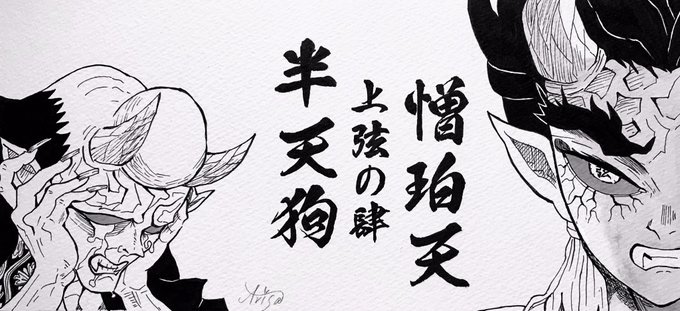 憎珀天
上弦の肆
半天狗
Arisa